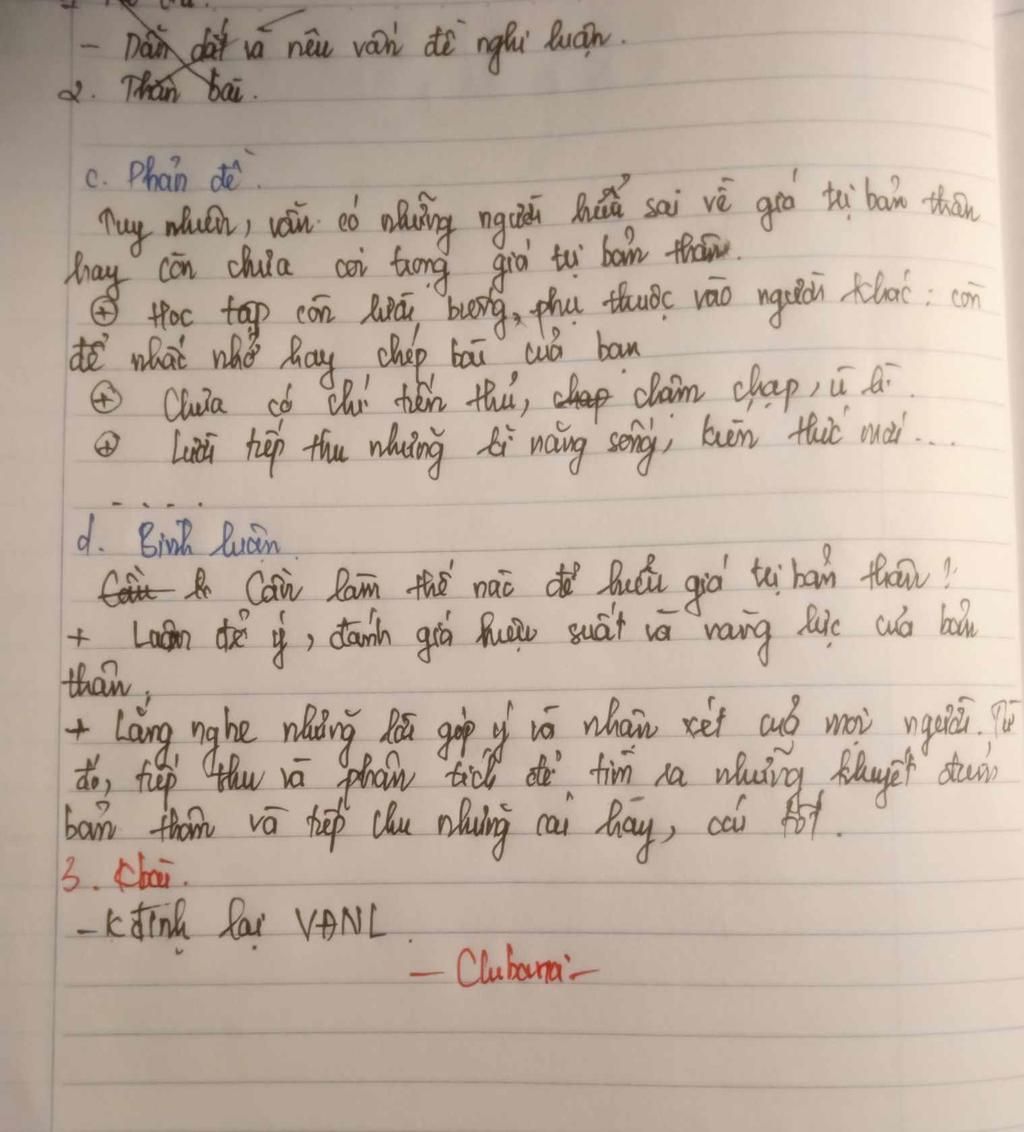 - Dẫn dắt và nêu vấn đề nghị luận.
2. Thân bài.
c. Phản đề.
Tuy nhiên, vẫn có những người hiểu sai về giá trị bản thân
hay còn chưa coi trọng giá trị bản thân.
+ Học tập còn lười biếng, phụ thuộc vào người khác: còn
để nhắc nhở hay chép bài của bạn
+ Chưa có chí tiến thủ, chap chậm chạp, ù lì.
+ Lười tiếp thu những kĩ năng sống, kiến thức mới...
. . . . .
d. Bình luận.
Cần Cần làm thế nào để hiểu giá trị bản thân?
+ Luôn để ý, đánh giá hiệu suất và năng lực của bản
thân,
+ Lắng nghe những lời góp ý và nhận xét của mọi người. Từ
đó, tiếp thu và phân tích để tìm ra những khuyết điểm
bản thân và tiếp thu những cái hay, cái tốt.
3. Kbài.
- K định lại VĐNL.